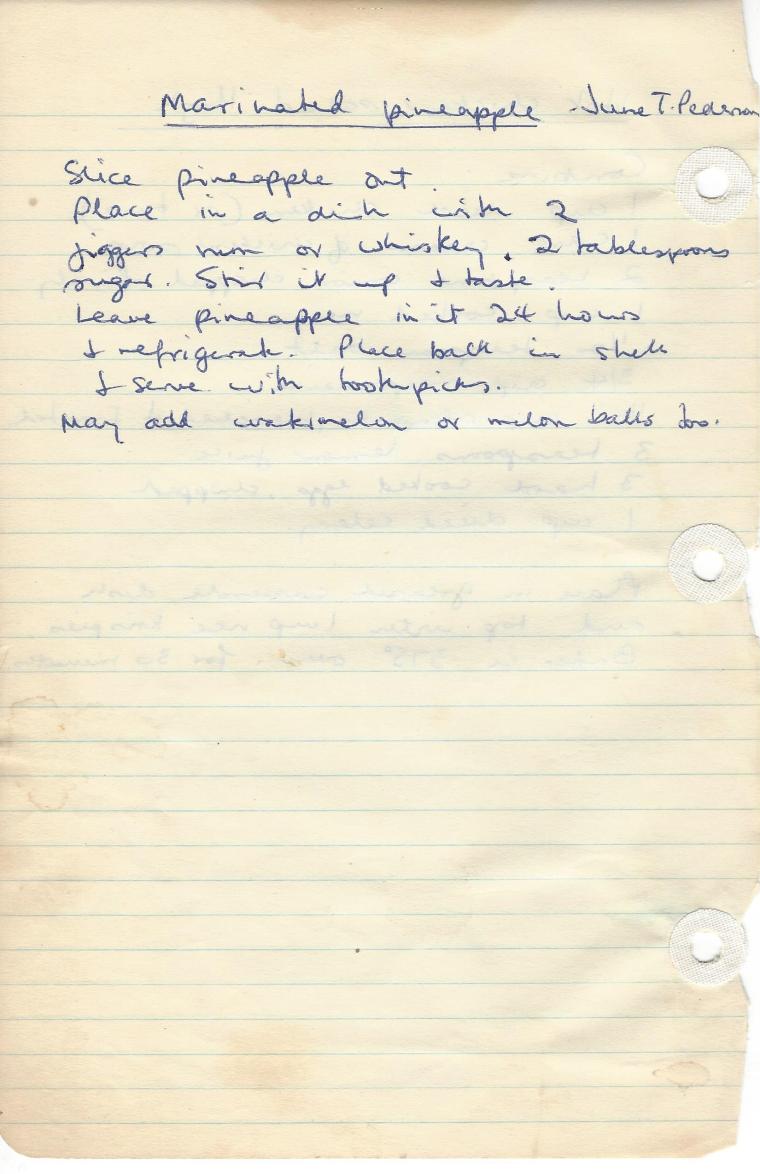 Marinated pineapple - June T. Pederson
Slice pineapple out.
Place in a dish with 2
jiggers rum or whiskey, 2 tablespoons
sugar. Stir it up & taste.
Leave pineapple in it 24 hours
& refrigerate. Place back in shell
& serve with toothpicks.
May add watermelon or melon balls too.